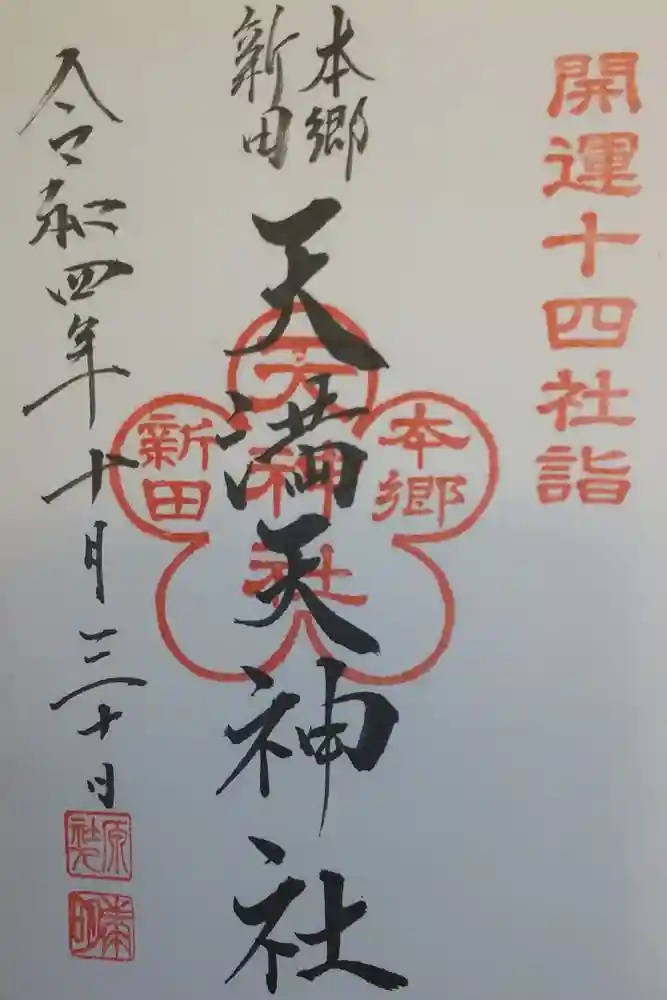 開運十四社詣
本郷
新田
天満天神社
天神社
本郷
新田
令和四年十月三十日